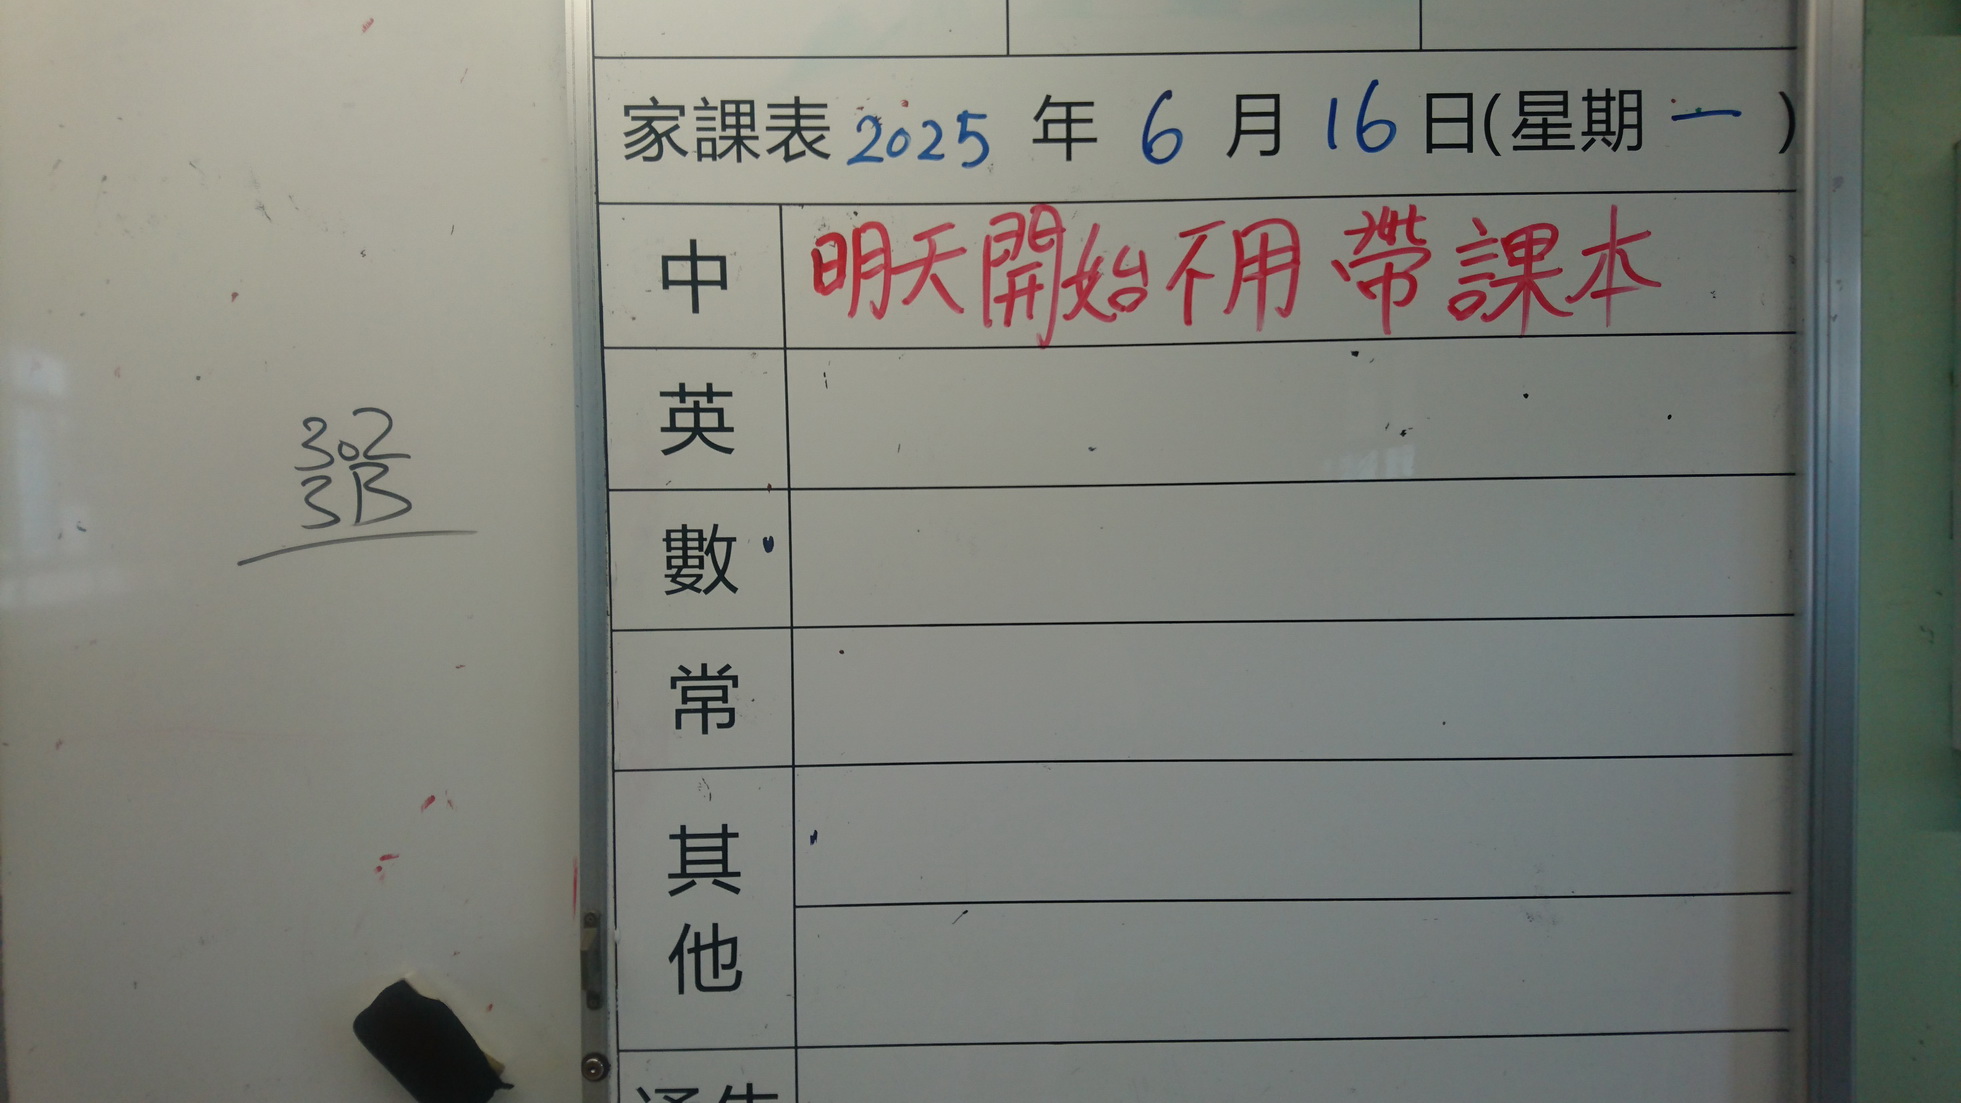 家課表 2025 年 6 月 16 日(星期 一 )
中 明天開始不用帶課本
英
數
常
其他
通告
302
3B